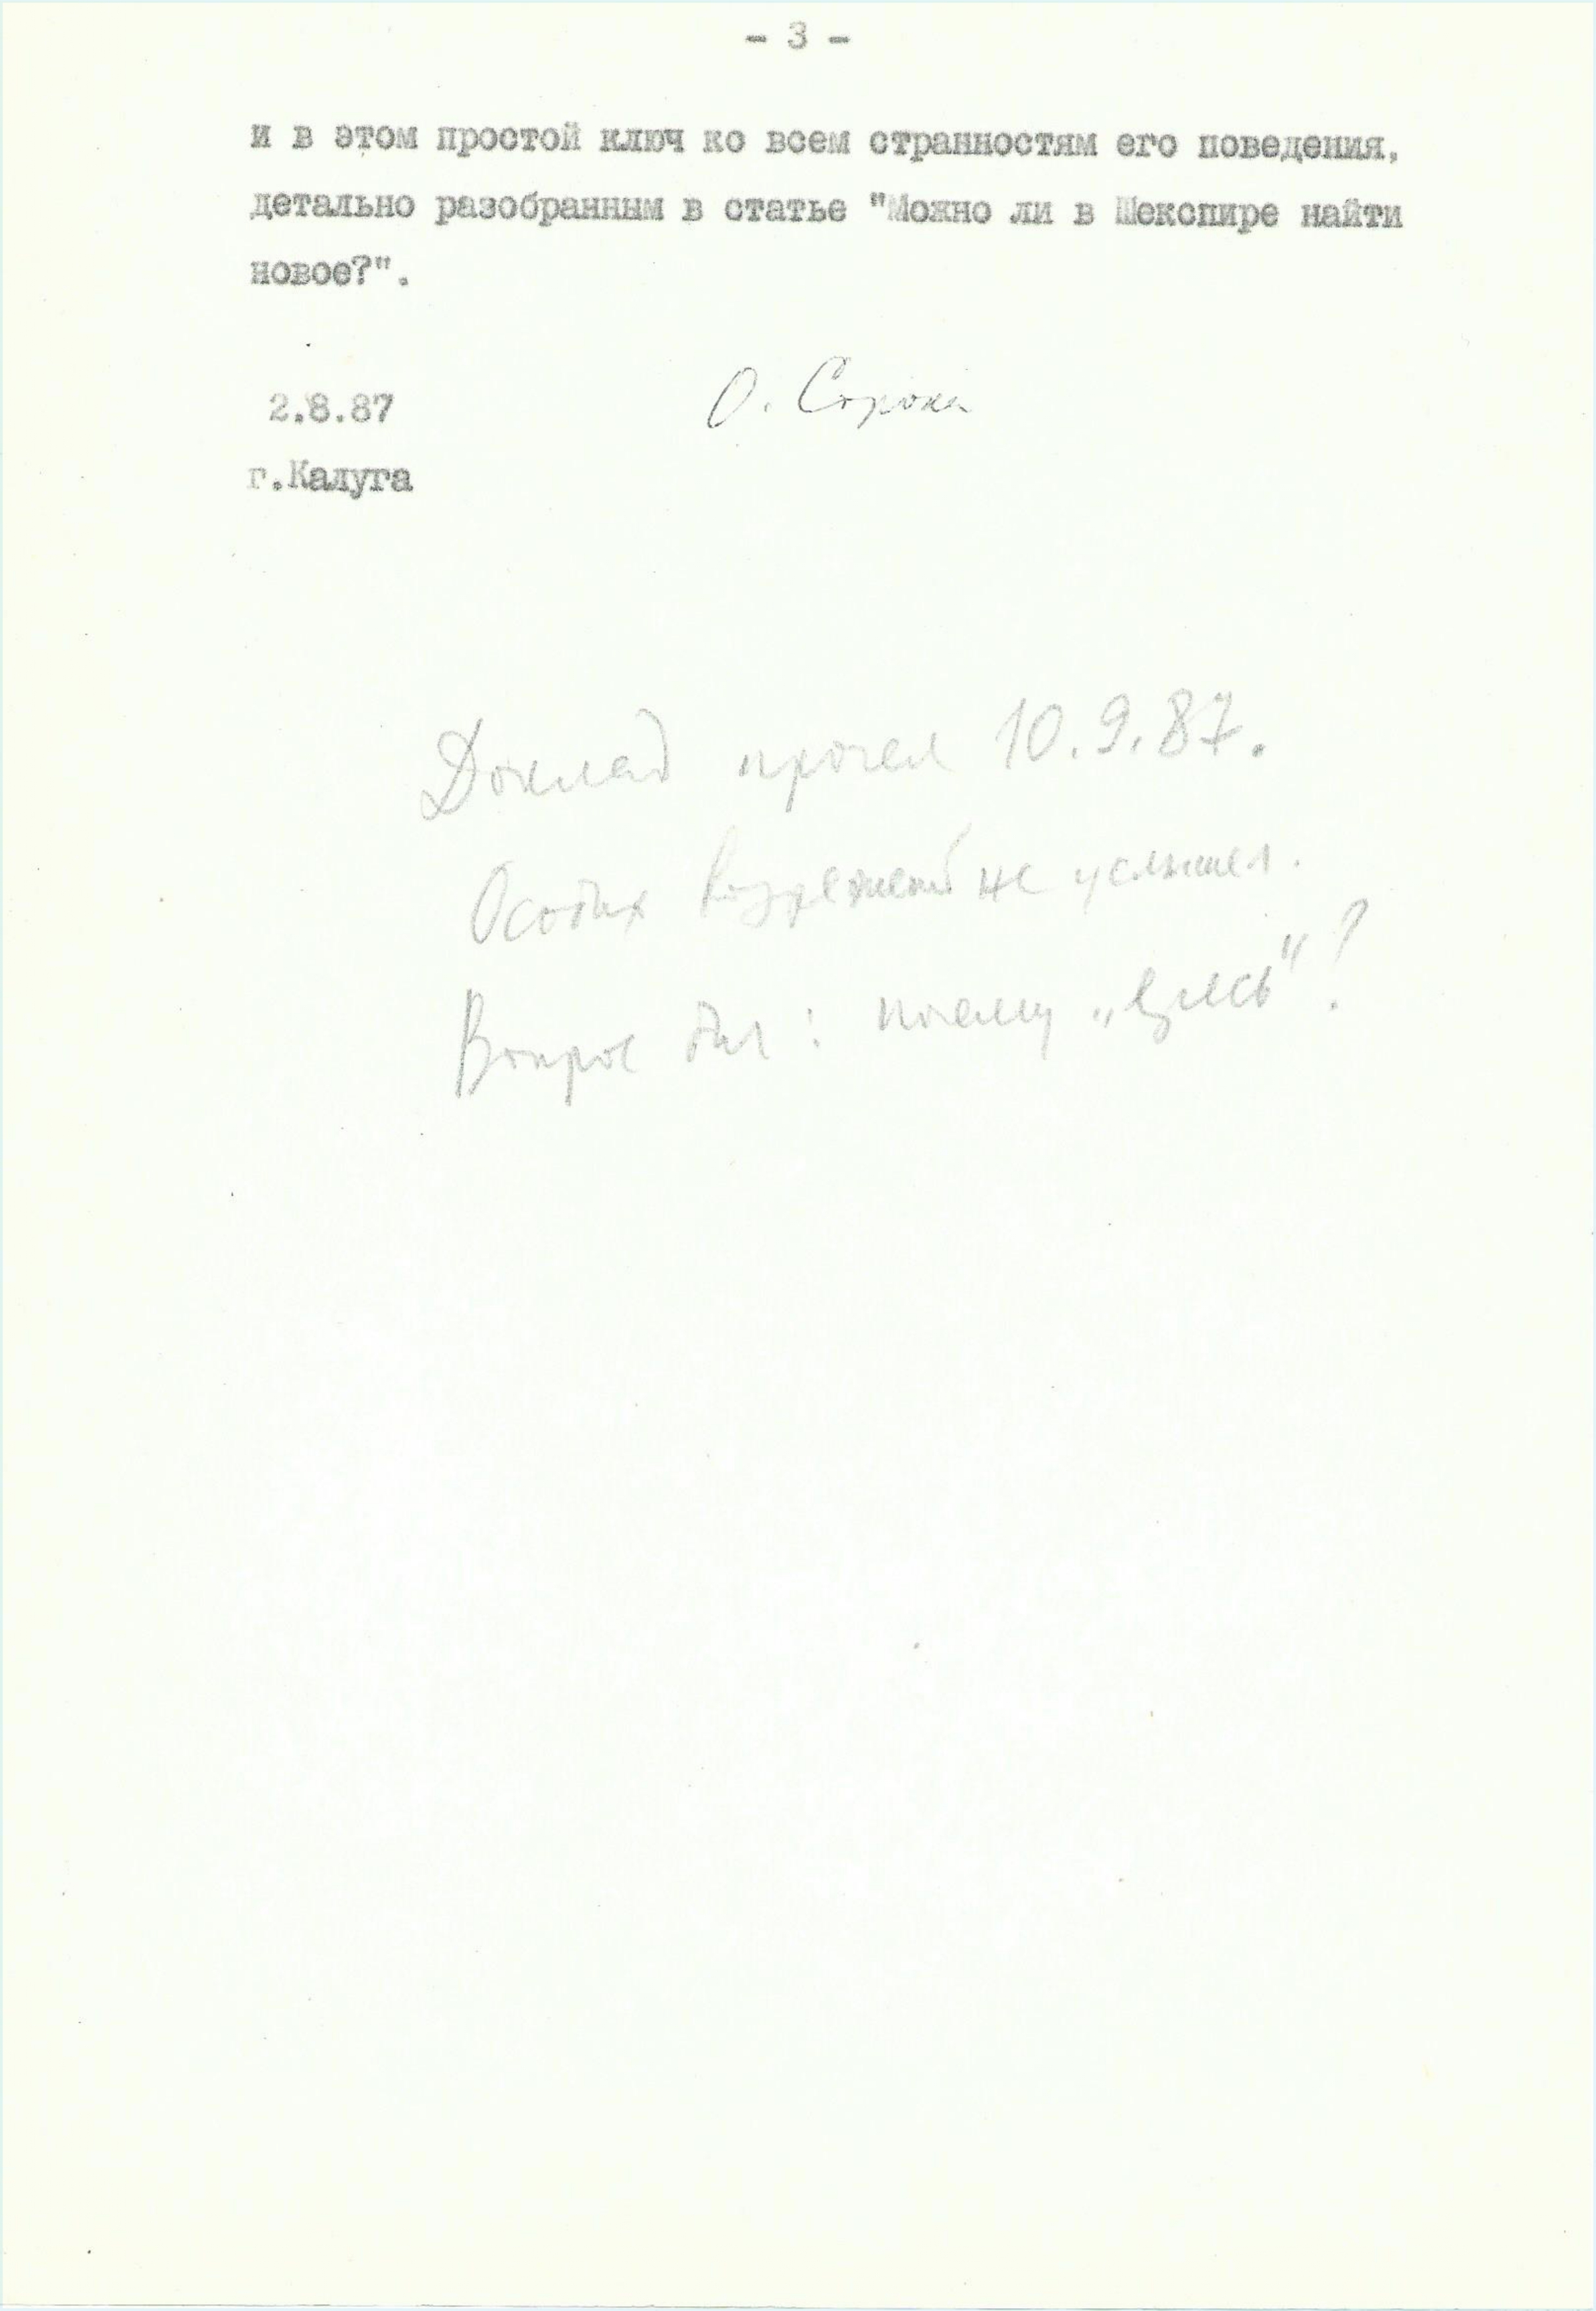 - 3 -
и в этом простой ключ ко всем странностям его поведения,
детально разобранным в статье "Можно ли в Шекспире найти
новое?".
2.8.87 О. Сорока
г.Калуга
Доклад прочел 10.9.87.
Особых возражений не услышал.
Вопрос был: почему „ “?